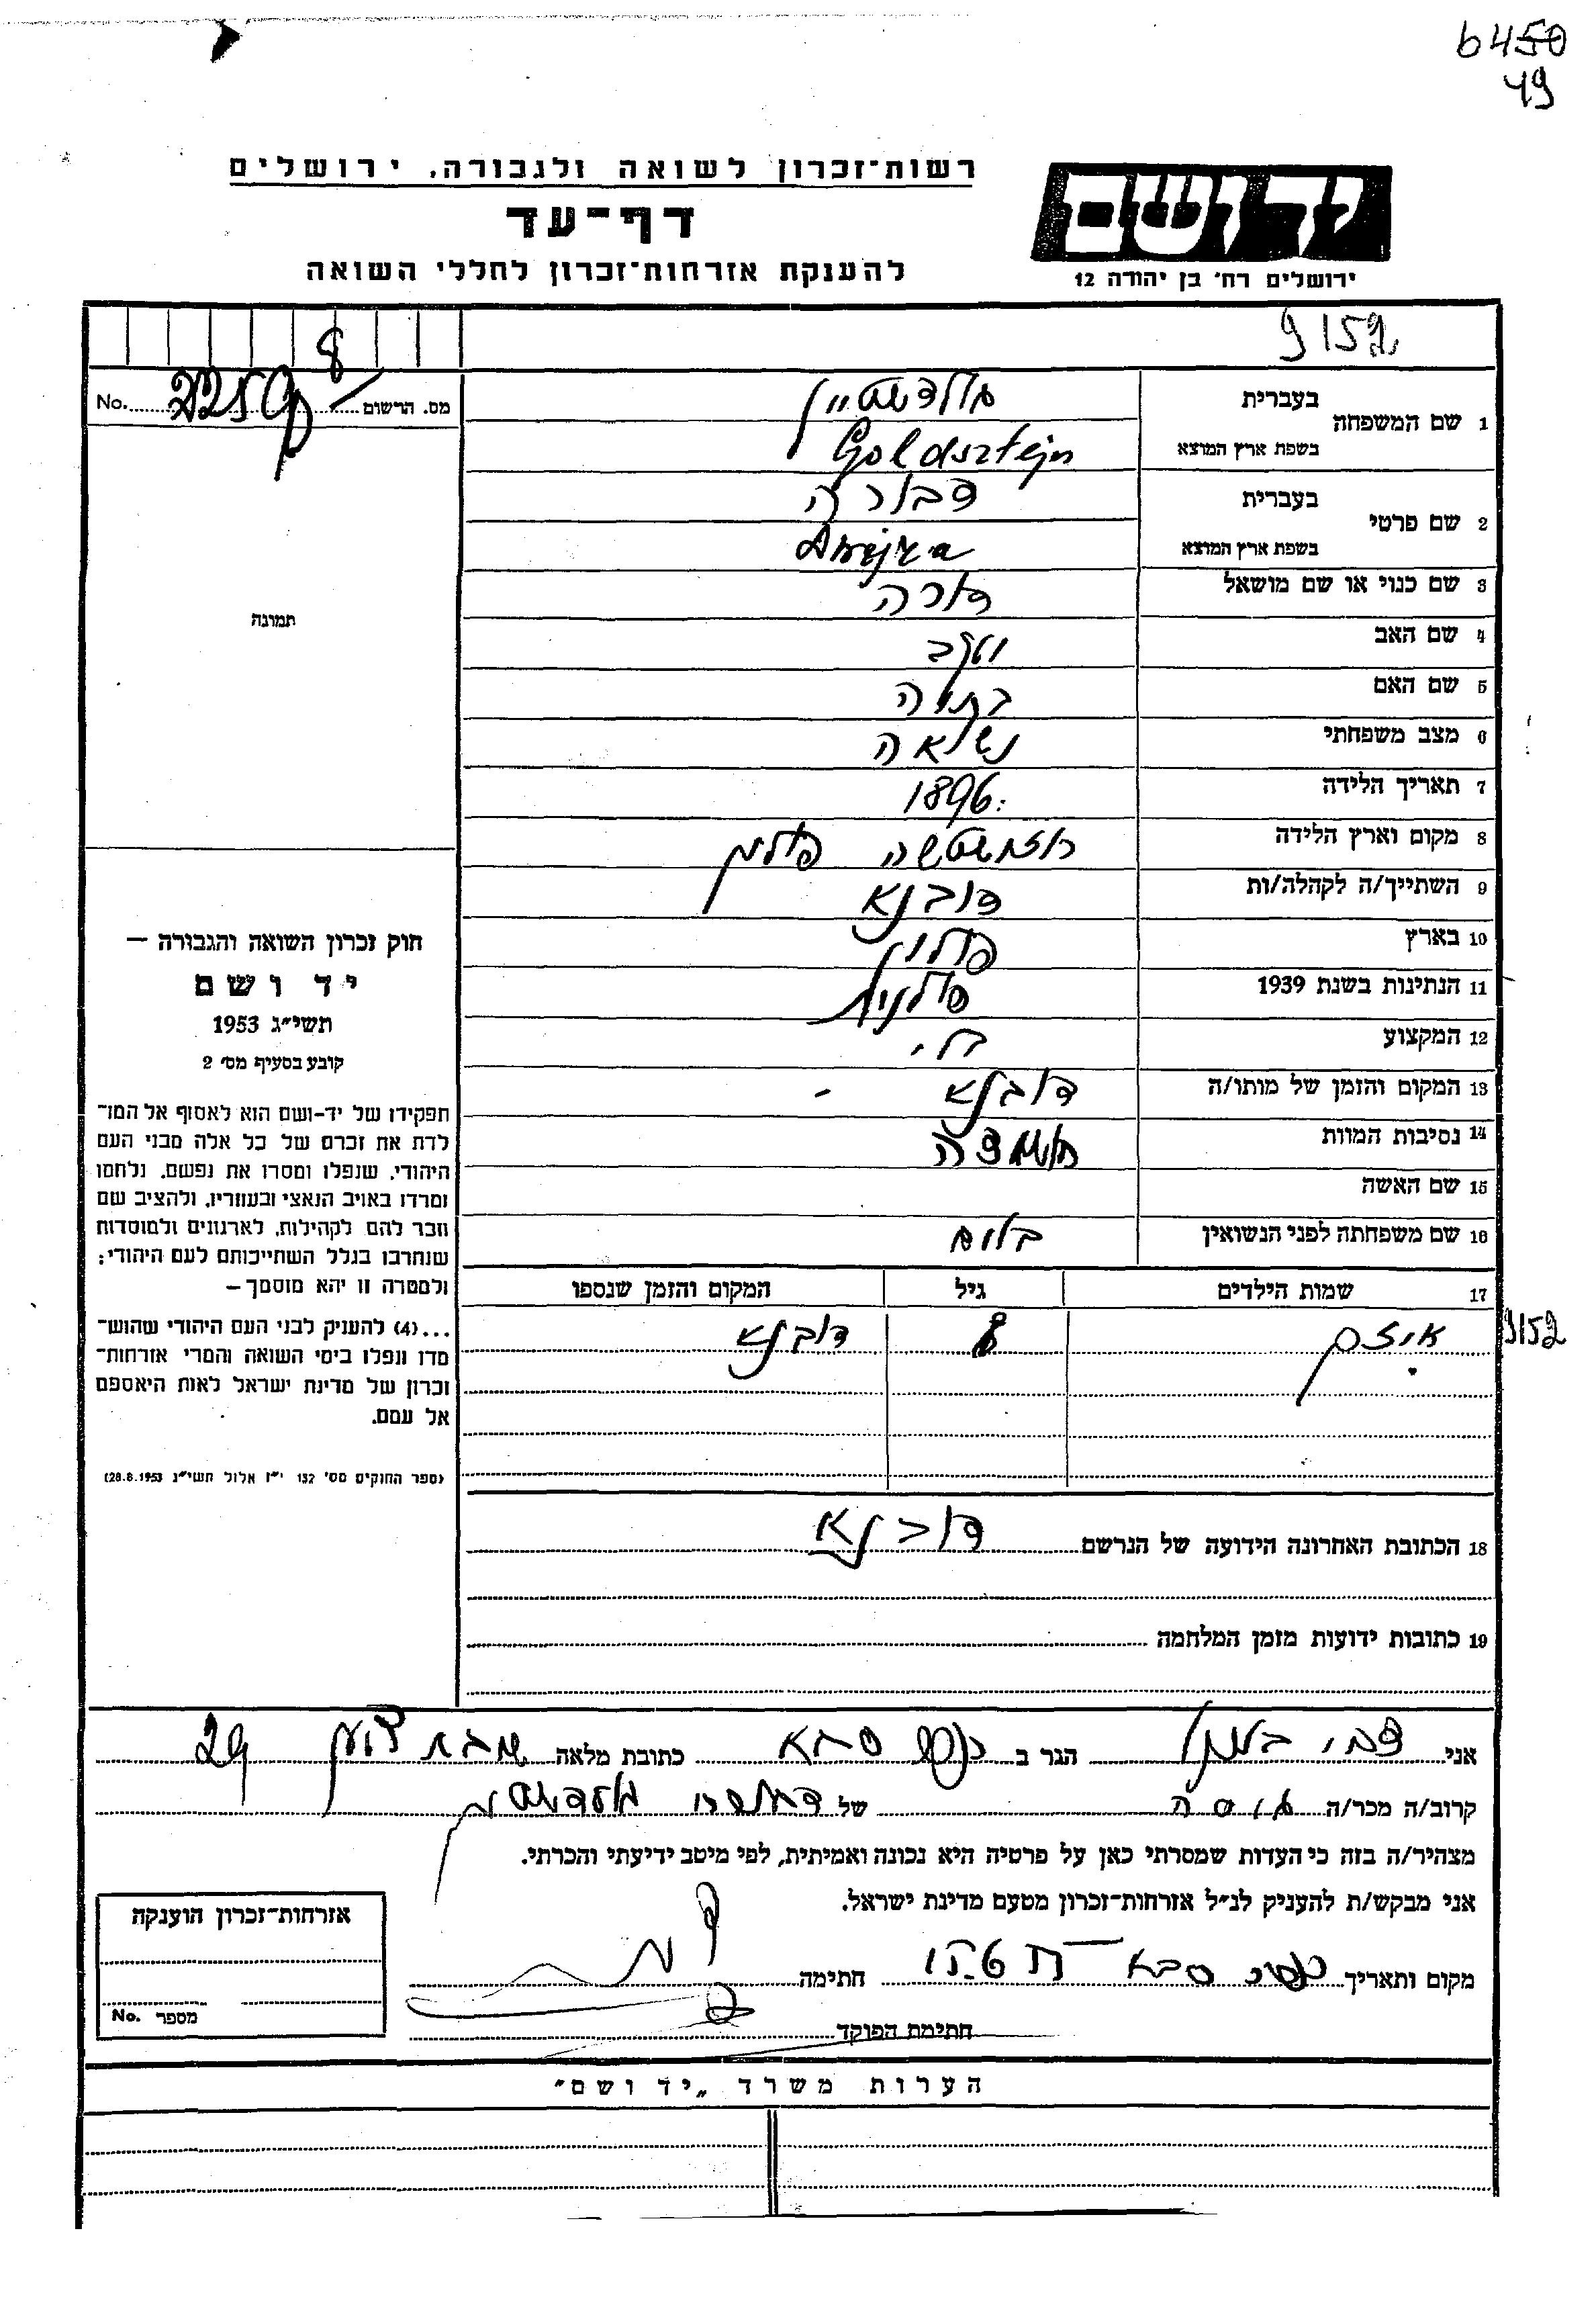 6450
49
רשות־זכרון לשואה ולגבורה, ירושלים
דף־עד
להענקת אזרחות־זכרון לחללי השואה
יד ושם
ירושלים רח' בן יהודה 12
9152
8
No. מס. הרשום
1 שם המשפחה
בעברית גולדשטיין
בשפת ארץ המוצא Goldsztejn
2 שם פרטי
בעברית דבורה
בשפת ארץ המוצא
3 שם כנוי או שם מושאל דורה
4 שם האב יעקב
5 שם האם בתיה
6 מצב משפחתי נשואה
7 תאריך הלידה 1896
8 מקום וארץ הלידה פולין
9 השתייך/ה לקהלה/ות דובנא
10 בארץ פולין
11 הנתינות בשנת 1939 פולנית
12 המקצוע
13 המקום והזמן של מותו/ה דובנא -
14 נסיבות המוות
15 שם האשה
16 שם משפחתה לפני הנשואין בלום
17 שמות הילדים גיל המקום והזמן שנספו
8 דובנא
9152
18 הכתובת האחרונה הידועה של הנרשם דובנא
19 כתובות ידועות מזמן המלחמה
תמונה
חוק זכרון השואה והגבורה –
יד ושם
תשי״ג 1953
קובע בסעיף מס' 2
תפקידו של יד-ושם הוא לאסוף אל המו־
לדת את זכרם של כל אלה מבני העם
היהודי, שנפלו ומסרו את נפשם, נלחמו
ומרדו באויב הנאצי ובעוזריו, ולהציב שם
וזכר להם לקהילות, לארגונים ולמוסדות
שנחרבו בגלל השתייכותם לעם היהודי;
ולמטרה זו יהא מוסמך –
...(4) להעניק לבני העם היהודי שהוש־
מדו ונפלו בימי השואה והמרי אזרחות־
זכרון של מדינת ישראל לאות היאספם
אל עמם.
(ספר החוקים מס' 132 י״ז אלול תשי״ג 28.8.1953)
אני צבי הגר ב כפר סבא כתובת מלאה שבת ציון 29
קרוב/ה מכר/ה של גולדשטיין
מצהיר/ה בזה כי העדות שמסרתי כאן על פרטיה היא נכונה ואמיתית, לפי מיטב ידיעתי והכרתי.
אני מבקש/ת להעניק לנ״ל אזרחות־זכרון מטעם מדינת ישראל.
מקום ותאריך כפר סבא חתימה
חתימת הפוקד
אזרחות־זכרון הוענקה
מספר No.
הערות משרד „יד ושם״